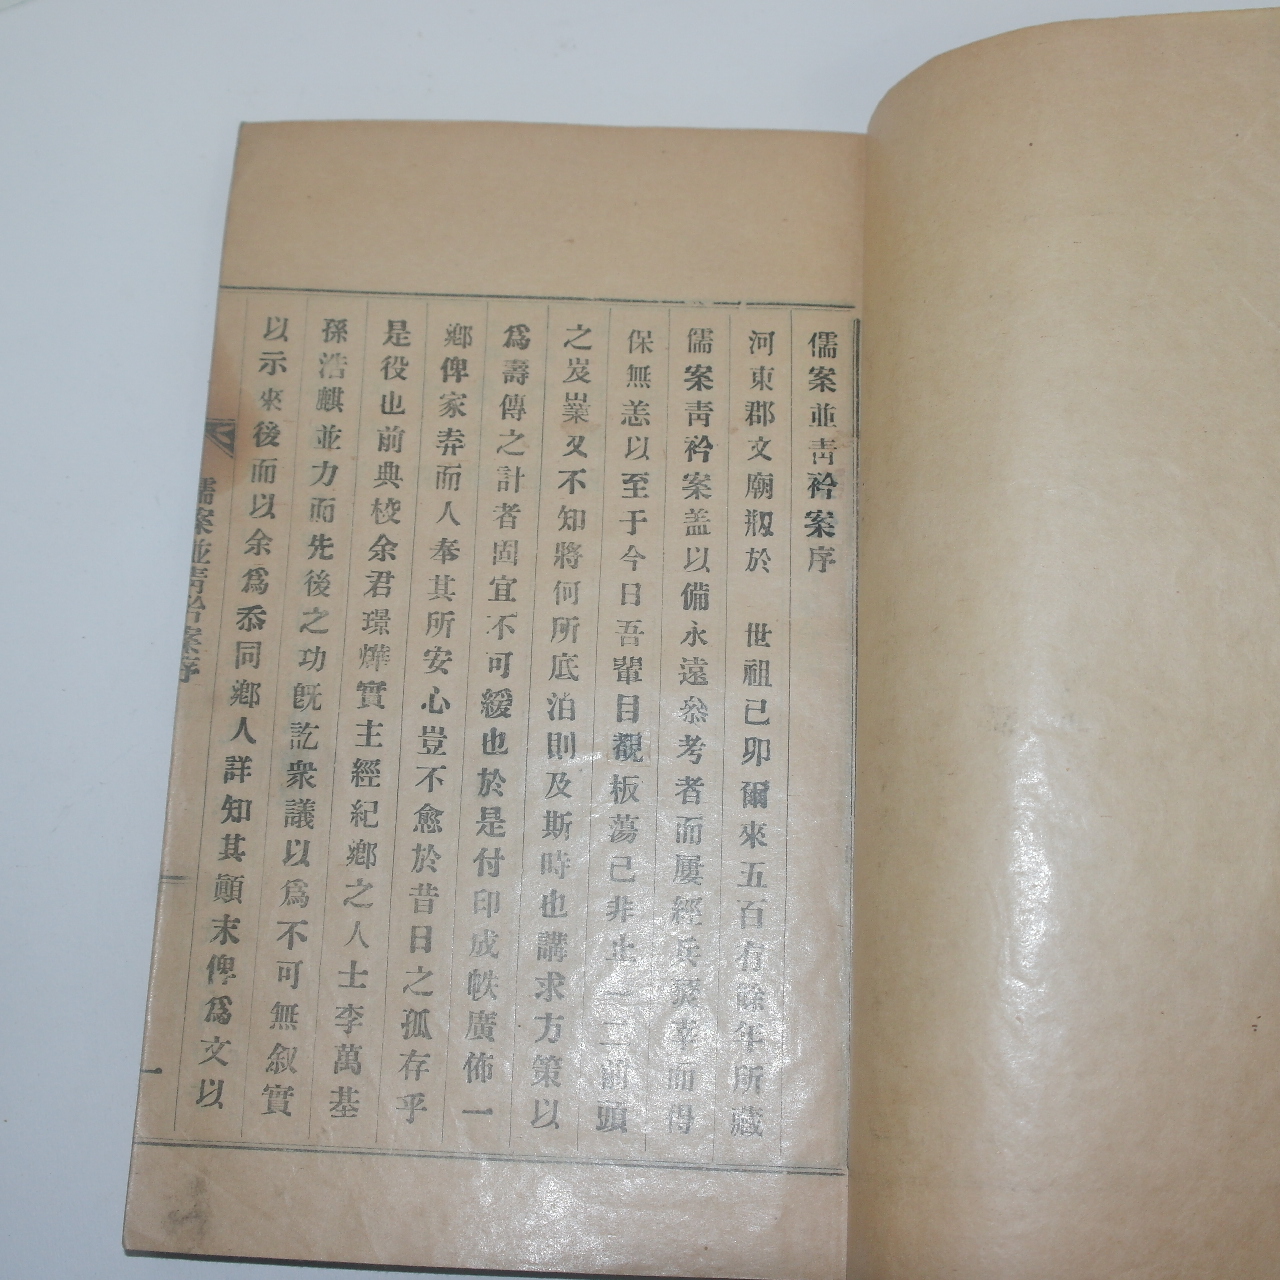 儒案並靑衿案序
河東郡文廟刱於 世祖己卯爾來五百有餘年所藏
儒案靑衿案盖以備永遠叅考者而屢經兵燹幸而得
保無恙以至于今日吾輩目覩板蕩已非止一二而頭
之岌嶪又不知將何所底泊則及斯時也講求方策以
爲壽傳之計者固宜不可緩也於是付印成帙廣佈一
鄕俾家弆而人奉其所安心豈不愈於昔日之孤存乎
是役也前典校余君璟燁實主經紀鄕之人士李萬基
孫浩麒並力而先後之功旣訖衆議以爲不可無叙實
以示來後而以余爲忝同鄕人詳知其顚末俾爲文以
儒案並靑衿案序
一